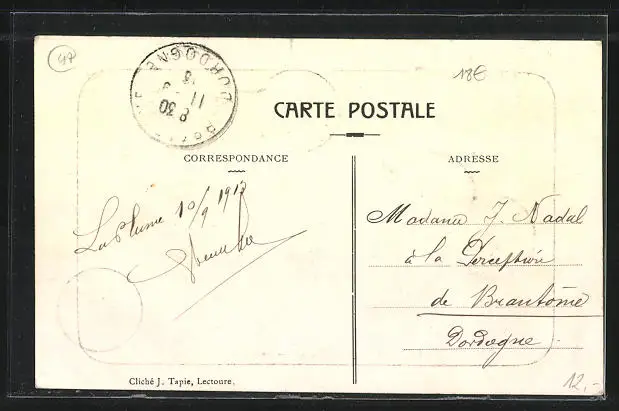 47
18€
DORDOGNE
8 30
11 - 9
13
CARTE POSTALE
CORRESPONDANCE
ADRESSE
La Plume 10/9 1913
Madame J. Nadal
à la Perception
de Brantôme
Dordogne
Cliché J. Tapie, Lectoure.
12.-